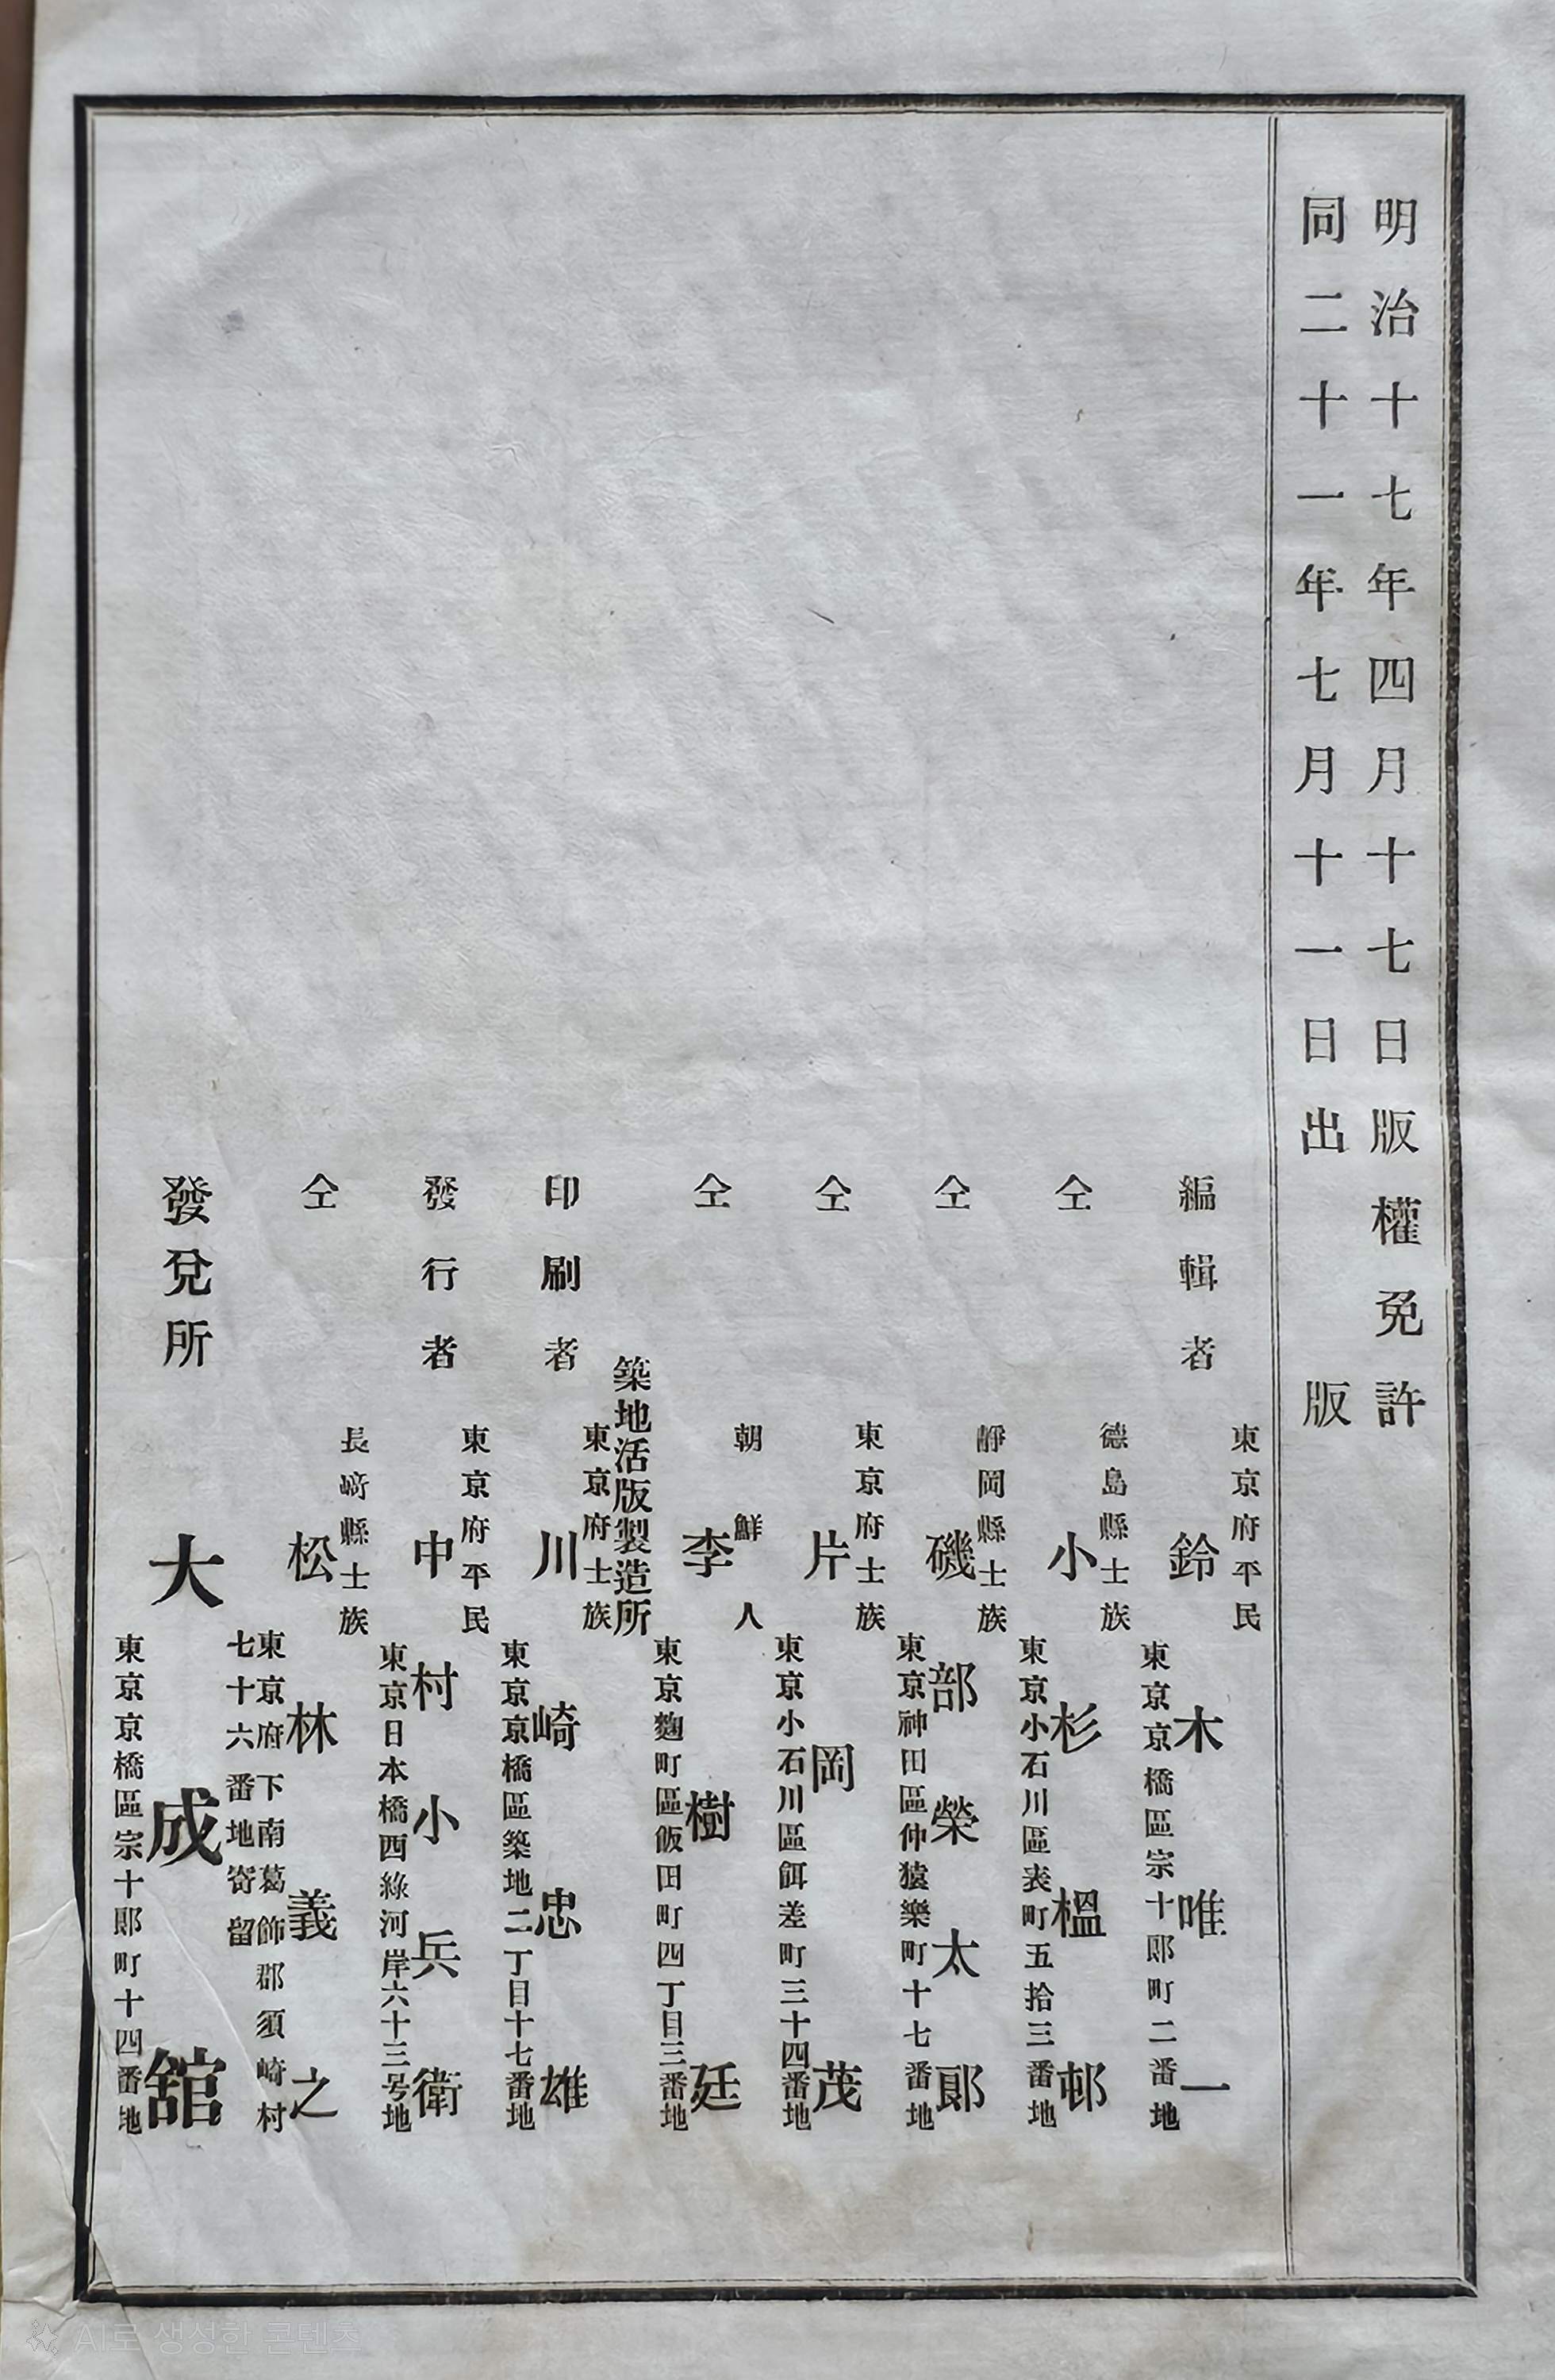 明治十七年四月十七日版權免許
同二十一年七月十一日出版
編輯者
東京府平民
鈴木唯一
東京京橋區宗十郞町二番地
仝
德島縣士族
小杉榲邨
東京小石川區表町五拾三番地
仝
靜岡縣士族
磯部榮太郞
東京神田區仲猿樂町十七番地
仝
東京府士族
片岡茂
東京小石川區餌差町三十四番地
仝
朝鮮人
李樹廷
東京麴町區飯田町四丁目三番地
築地活版製造所
印刷者
東京府士族
川崎忠雄
東京京橋區築地二丁目十七番地
發行者
東京府平民
中村小兵衛
東京日本橋西綠河岸六十三号地
仝
長崎縣士族
松林義之
東京府下南葛飾郡須崎村
七十六番地寄留
發兌所
大成舘
東京京橋區宗十郞町十四番地
AI로 생성한 콘텐츠